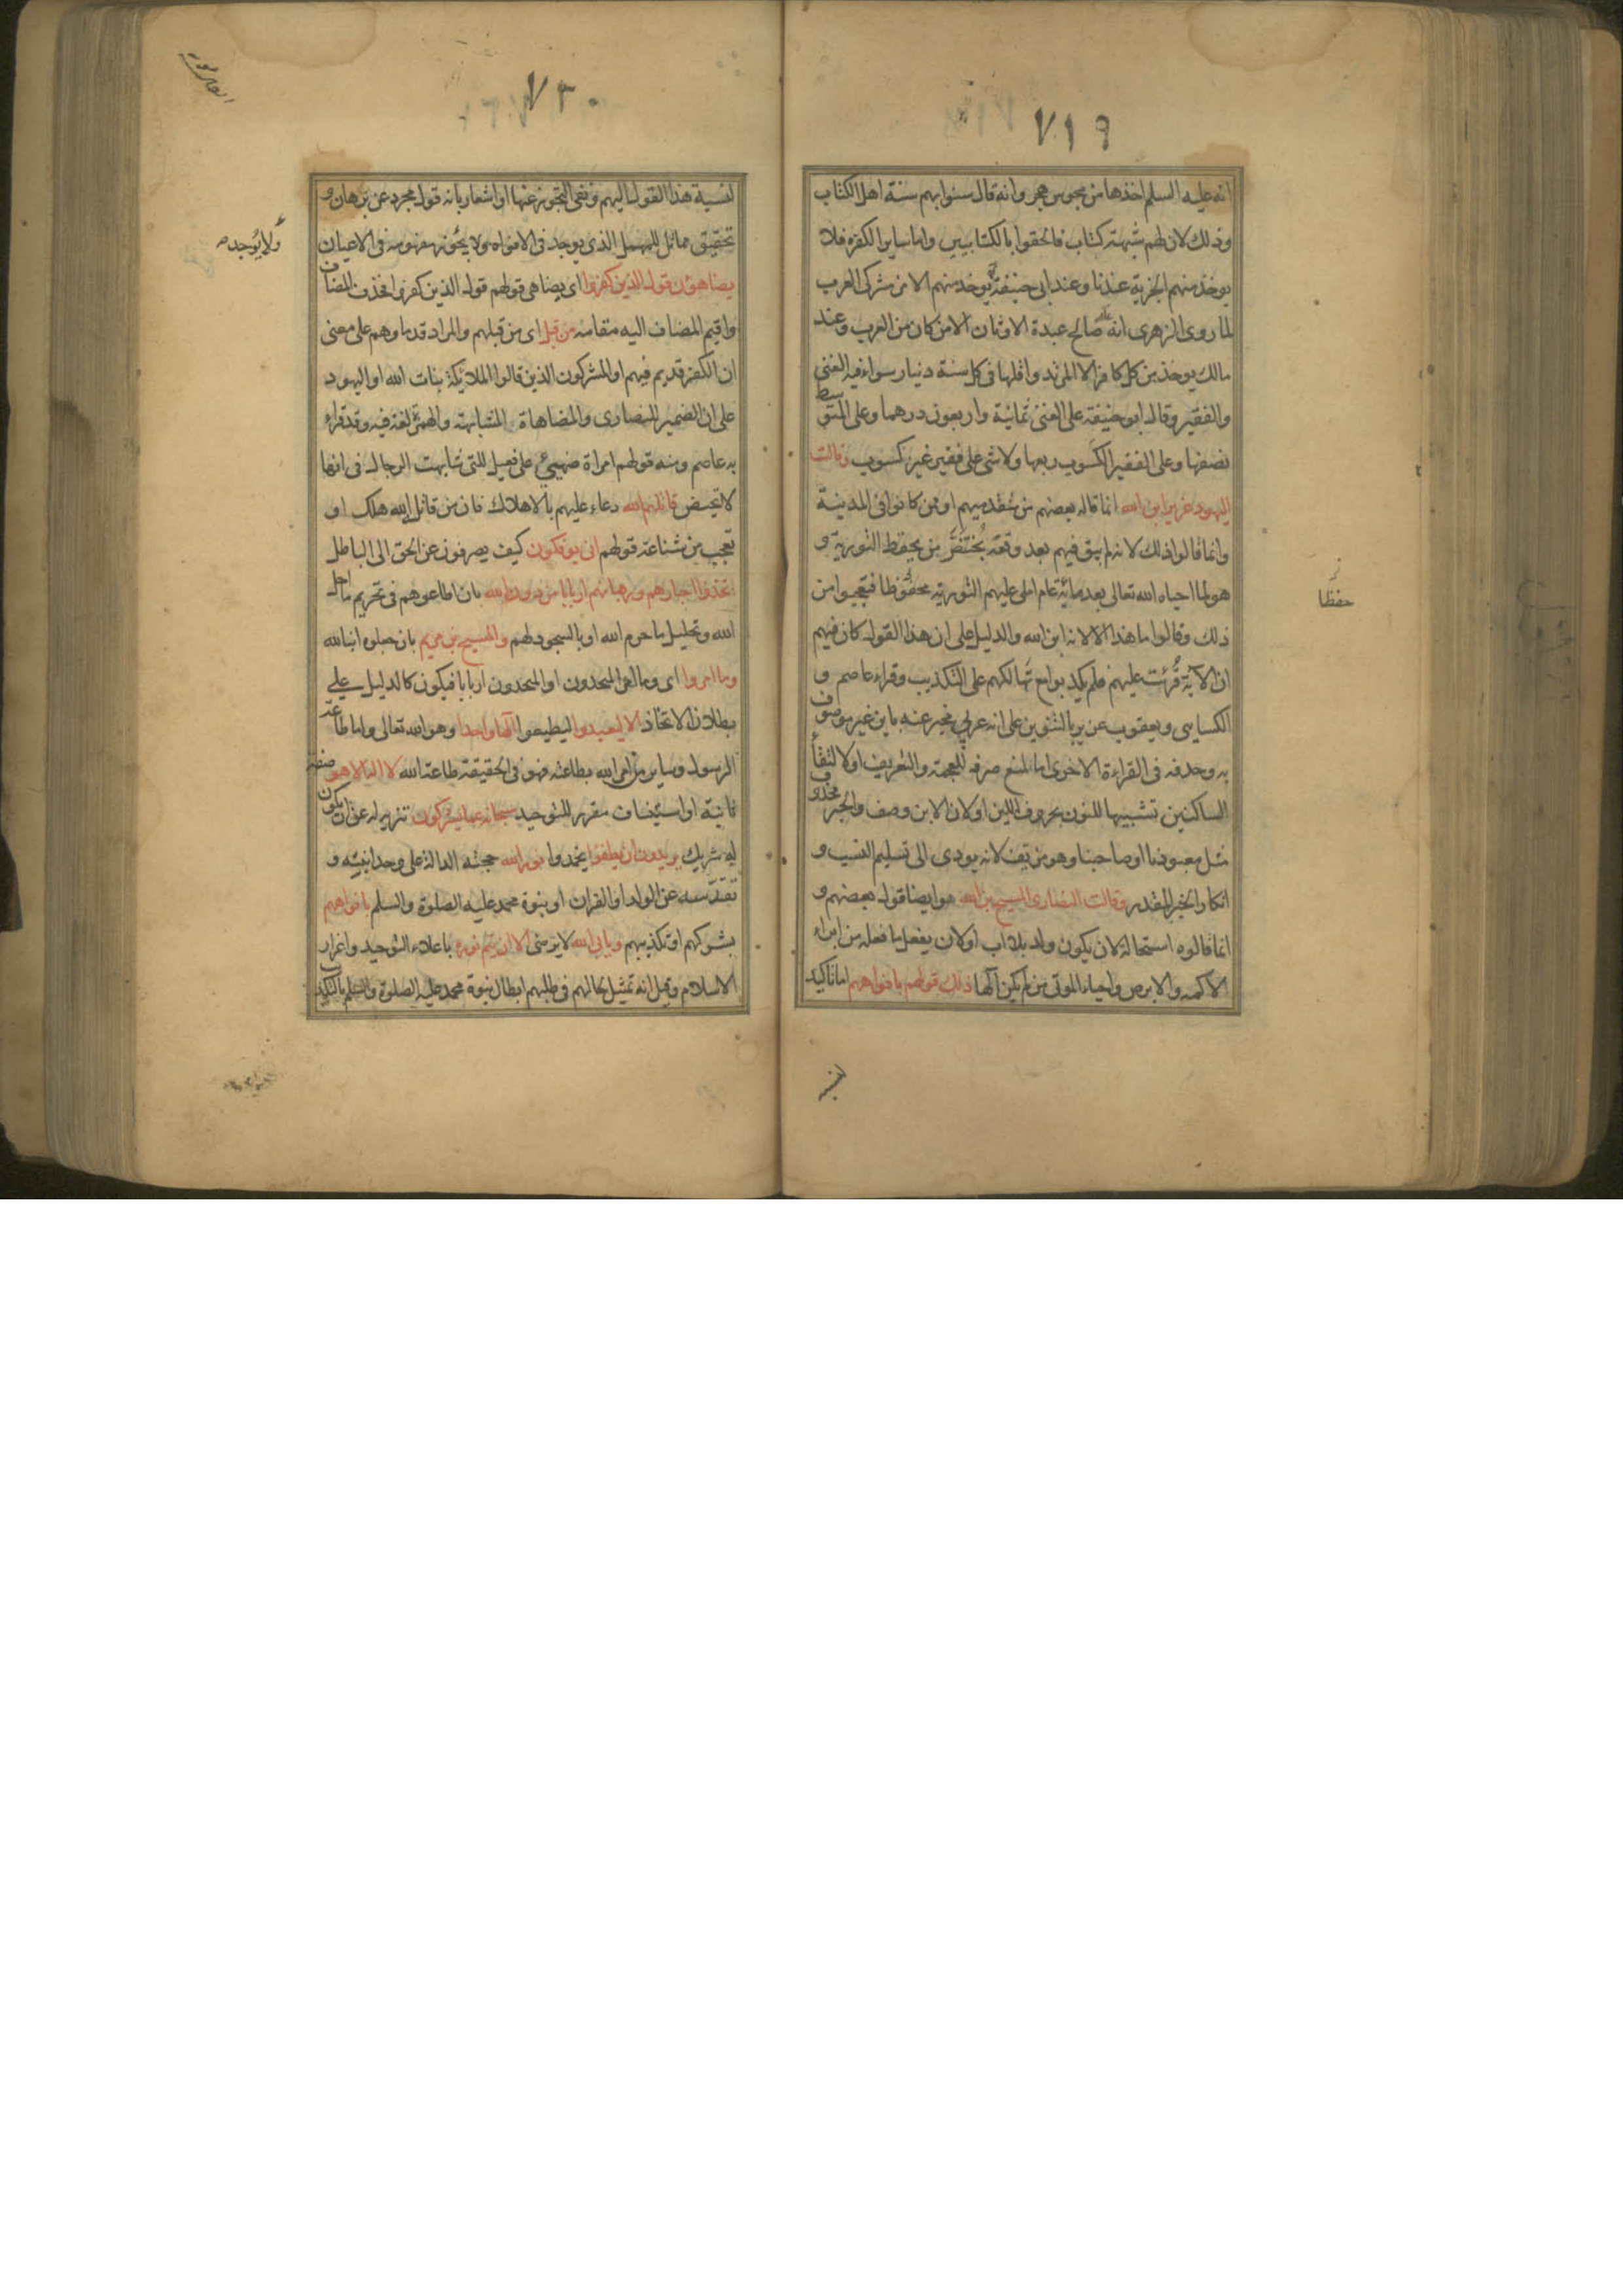 ٧١٩
انه عليه السلم اخذها من مجوس هجر وانه قال سنوا بهم سنة اهل الكتاب
وذلك لان لهم شبهته كتاب فالحقوا بالكتابيين واما سايرا لكفره فلا
يوخذ منهم الجزية عندنا وعند ابى حنيفة يوخذ منهم الا من مشركى العرب
لما روى الزهرى انه صالح عبدة الاوثان الا من كان من العرب وعند
مالك يوخذ من كل كافر الا المرتد واقلها فى كل سنة دينار سواء فيه الغنى
والفقير وقال ابو حنيفة على الغنى ثمانية واربعون درهما وعلى المتوسط
نصفها وعلى الفقير الكسوب ربعها ولا شى على فقير غير كسوب وقالت
اليهود عزير ابن الله انما قاله بعضهم من متقدميهم او ممن كانوا فى المدينة
وانما قالوا ذلك لانه لم يبق فيهم بعد وقعة بُختنَصَّر من يحفظ التورية و
هو لما احياه الله تعالى بعد مائية عام املى عليهم التورية محفوظا فتعجبوا من
حفظا
ذلك وقالوا ما هذا الا لانه ابن الله والدليل على ان هذا القول كان فيهم
ان الآية قُرئت عليهم فلم يكذبوا مع تهالكهم على التكذيب وقراء عاصم و
الكسايى ويعقوب عزير بالتنوين على انه عربى مخبر عنه باين غير موصوف
به وحذفه فى القراءة الاخرى اما لمنع صرفه للعجمة والتعريف او لالتقاء
الساكنين تشبيها للنون بحروف اللين او لان الابن وصف والخبر محذوف
مثل معبودنا او صاحبنا وهو مزيف لانه يودى الى تسليم النسب و
انكار الخبر المقدر وقالت النصارى المسيح بن الله هو ايضا قول بعضهم و
انما قالوه استحالة لان يكون ولد بلا اب او لان يفعل ما فعله من ابراء
الاكمه والابرص واحياء الموتى من لم يكن آلها ذلك قولهم بافواههم اما تاكيد
لنسبة
٧٢٠
لنسبة هذا القول اليهم ونفى التجوز عنها او اشعار بانه قول مجرد عن برهان و
تحقيق مماثل للمهمل الذى يوجد فى الافواه ولا يجُوز مفهومه فى الاعيان
ولا يُوجد
يضاهؤن قول الذين كفروا اى يضاهى قولهم قول الذين كفروا فحذف المضاف
واقيم المضاف اليه مقامه من قبل اى من قبلهم والمراد قدماوهم على معنى
ان الكفر قديم فيهم او المشركون الذين قالوا الملائكة بنات الله او اليهود
على ان الضمير للنصارى والمضاهاة المشابهته والهمز لغة فيه وقد قراء
به عاصم ومنه قولهم امراة ضهيئ على فعيل للتى شابهت الرجال فى انها
لا تحيض قاتلهم الله دعاء عليهم بالاهلاك فان من قاتل الله هلك او
تعجب من شناعة قولهم انى يوفكون كيف يصرفون عن الحق الى الباطل
تخذوا احبارهم ورهبانهم اربابا من دون الله بان اطاعوهم فى تحريم ما احل
الله وتحليل ما حرم الله او بالسجود لهم والمسيح بن مريم بان جعلوه ابنا لله
وما امروا اى وما امر المتخذون او المتخذون اربابا فيكون كالدليل على
بطلان الاتخاذ الا ليعبدوا ليطيعوا الها واحدا وهو الله تعالى واما طاعة
الرسول وساير من امر الله بطاعته فهو فى الحقيقة طاعة الله لا اله الا هو صفة
ثانية او استيناف مقرر للتوحيد سبحانه عما يشركون تنزيه له عن ان يكون
له شريك يريدون ان يطفؤا يخمدوا نور الله حجته الدالة على وحدانيته و
تقدّسه عن الولد او القران او نبوة محمد عليه الصلوة والسلم بافواههم
بشركهم او تكذيبهم ويابى الله لا يرضى الا ان يتم نوره باعلاء التوحيد واعزاز
الاسلام وقيل انه تمثيل لحالهم فى طلبهم ابطال نبوة محمد عليه الصلوة والسلم بالتكذيب